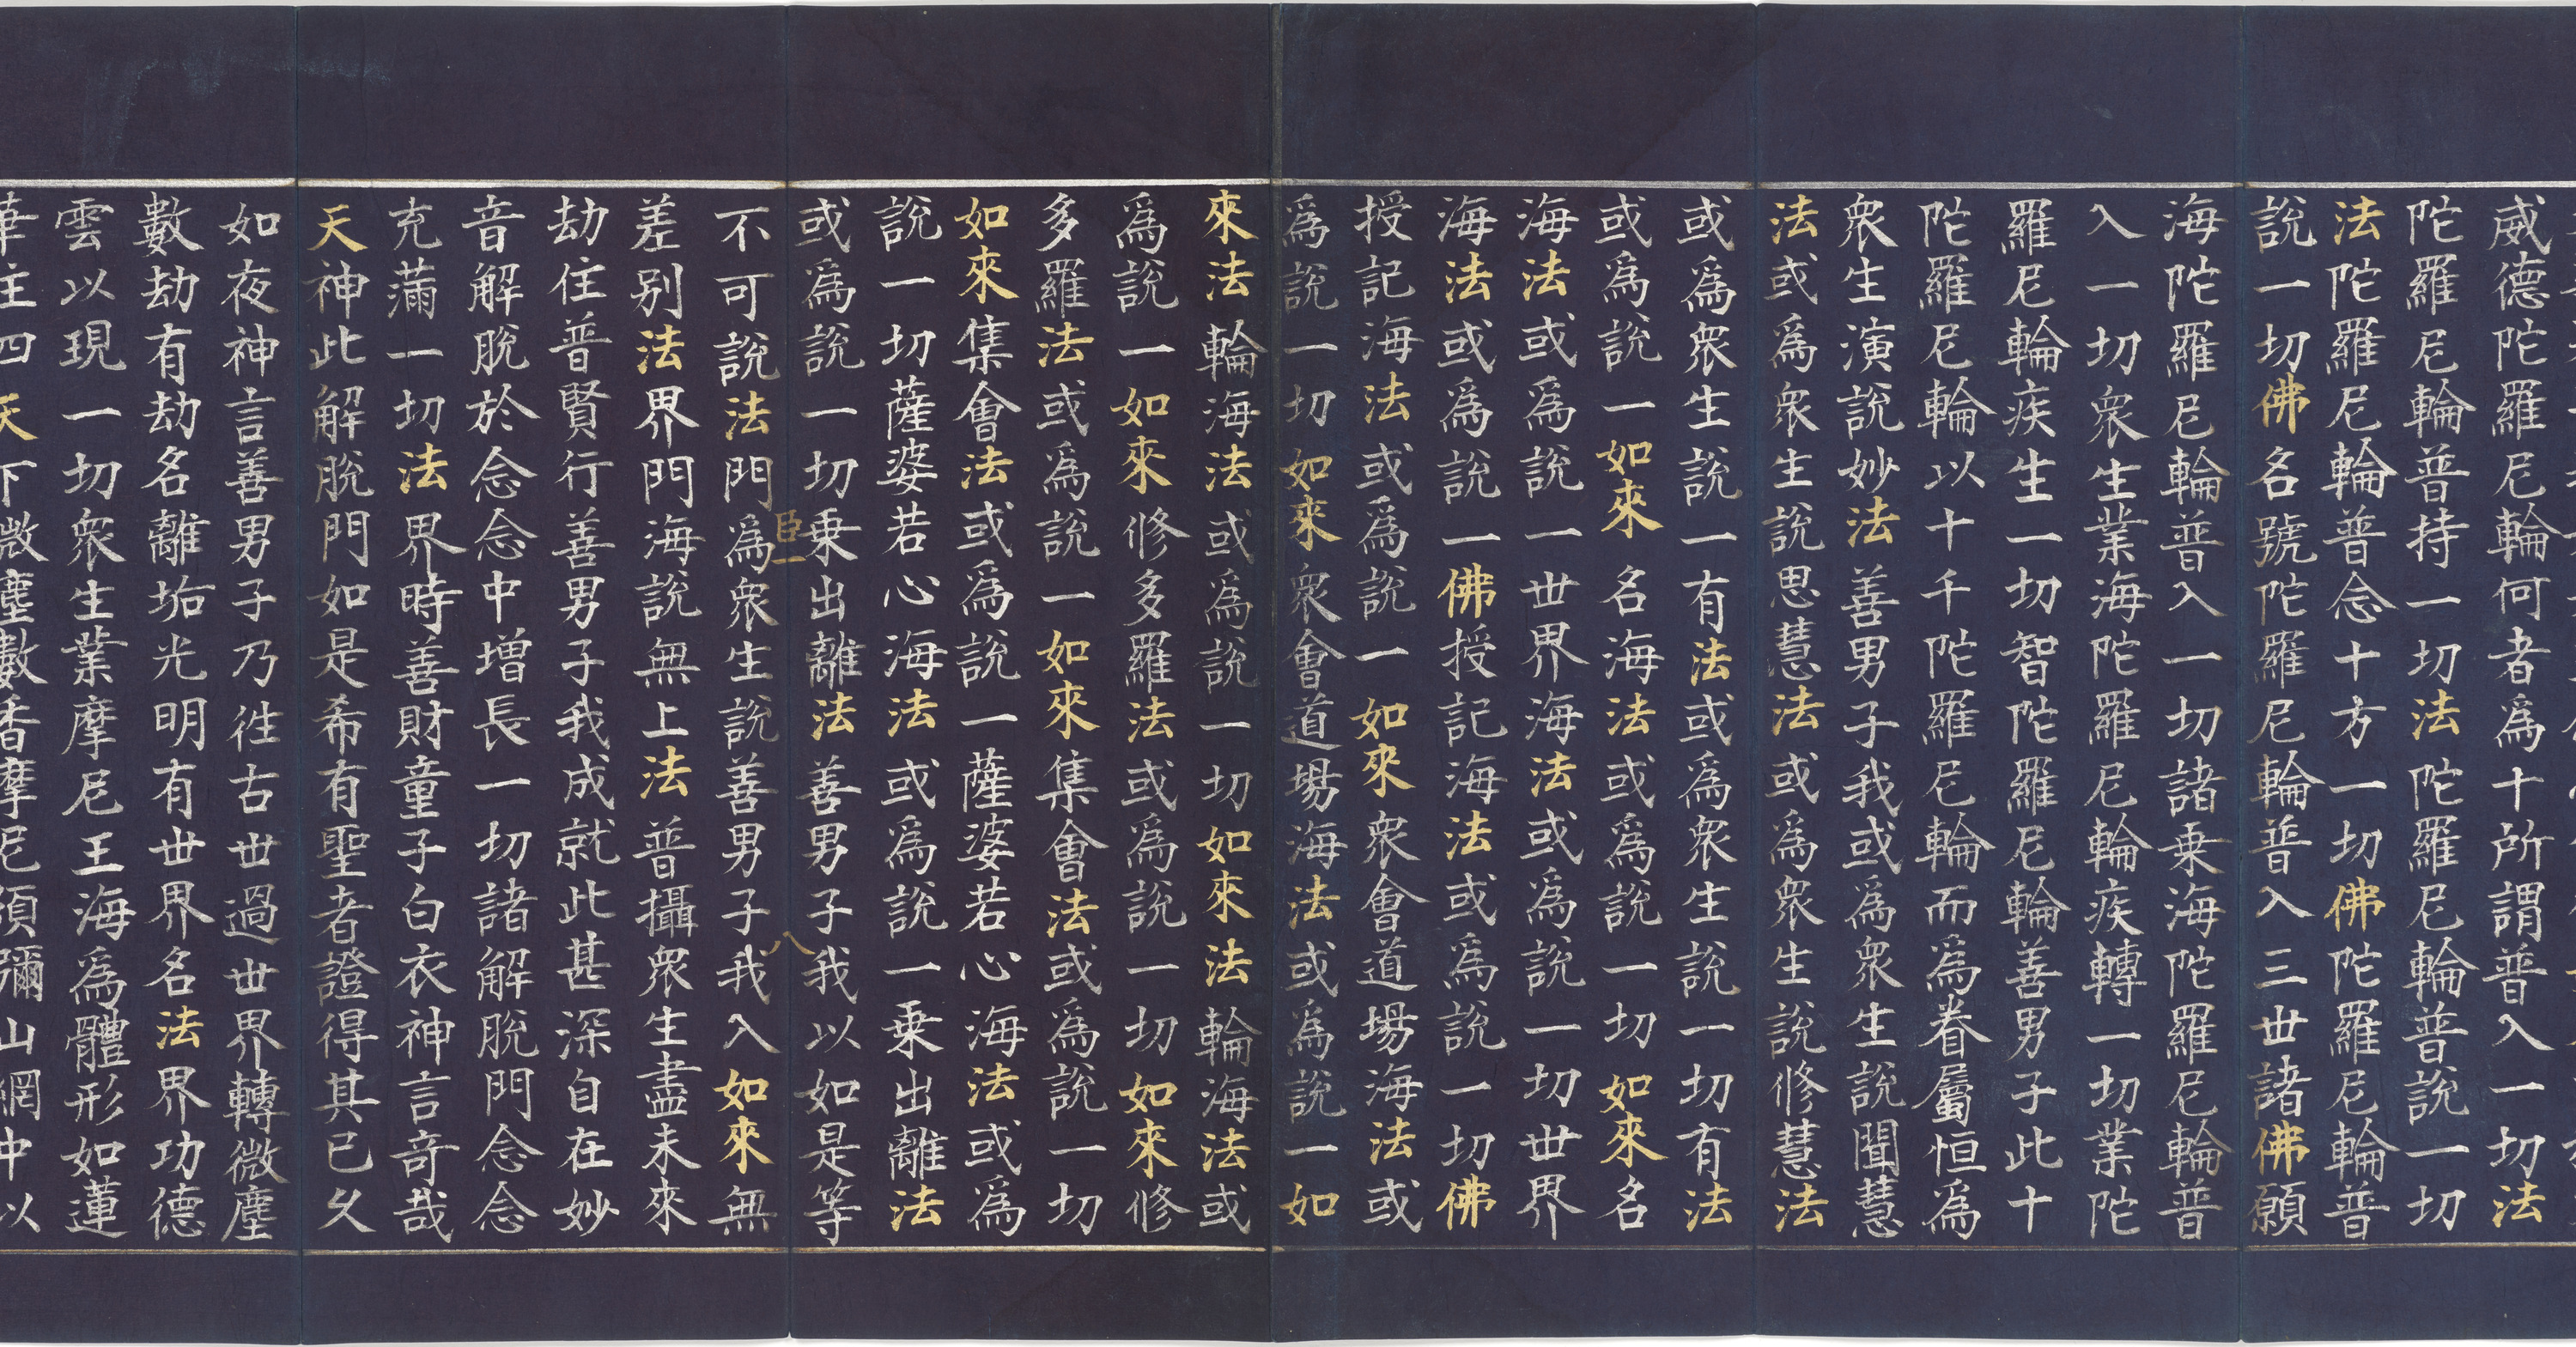 威德陀羅尼輪何者爲十所謂普入一切法
陀羅尼輪普持一切法陀羅尼輪普說一切
法陀羅尼輪普念十方一切佛陀羅尼輪普
說一切佛名號陀羅尼輪普入三世諸佛願
海陀羅尼輪普入一切諸乗海陀羅尼輪普
入一切衆生業海陀羅尼輪疾轉一切業陀
羅尼輪疾生一切智陀羅尼輪善男子此十
陀羅尼輪以十千陀羅尼輪而爲眷屬恒爲
衆生演說妙法善男子我或爲衆生說聞慧
法或爲衆生說思慧法或爲衆生說修慧法
或爲衆生說一有法或爲衆生說一切有法
或爲說一如來名海法或爲說一切如來名
海法或爲說一世界海法或爲說一切世界
海法或爲說一佛授記海法或爲說一切佛
授記海法或爲說一如來衆會道場海法或
爲說一切如來衆會道場海法或爲說一如
來法輪海法或爲說一切如來法輪海法或
爲說一如來修多羅法或爲說一切如來修
多羅法或爲說一如來集會法或爲說一切
如來集會法或爲說一薩婆若心海法或爲
說一切薩婆若心海法或爲說一乗出離法
或爲說一切乗出離法善男子我以如是等
臣一
八
不可說法門爲衆生說善男子我入如來無
差別法界門海說無上法普攝衆生盡未來
劫住普賢行善男子我成就此甚深自在妙
音解脫於念念中增長一切諸解脫門念念
充滿一切法界時善財童子白衣神言奇哉
天神此解脫門如是希有聖者證得其已久
如夜神言善男子乃徃古世過世界轉微塵
數劫有劫名離垢光明有世界名法界功德
雲以現一切衆生業摩尼王海爲體形如蓮
華住四天下微塵數香摩尼須彌山網中以